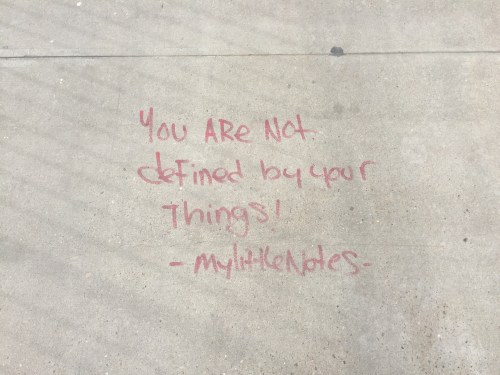 You ARe Not
defined by your
Things!
- mylittleNotes-